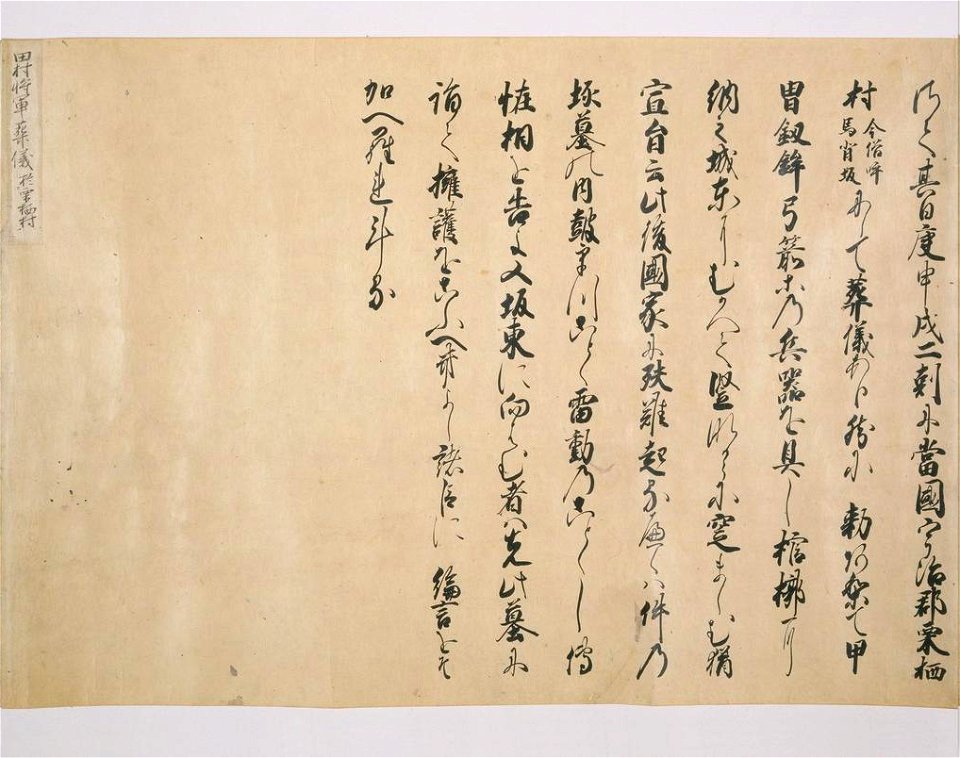 其日庚申戌二剋に當國宇治郡栗栖
村 今俗呼
馬背坂 にて葬儀あり然に 勅ありて甲
冑釼鉾弓箭等乃兵器を具し棺槨に
納て城東にむかへて竪なからに窆ましむ猶
宣旨云此後國家に殃難起るへくハ件乃
塚墓の内鼓をうつことく雷動乃ことくし
恠相を告又坂東に向はむ者ハ先此墓に
詣て擁護をこふへきよし諸臣に 綸言をそ
加へられける
田村将軍葬儀於栗栖村